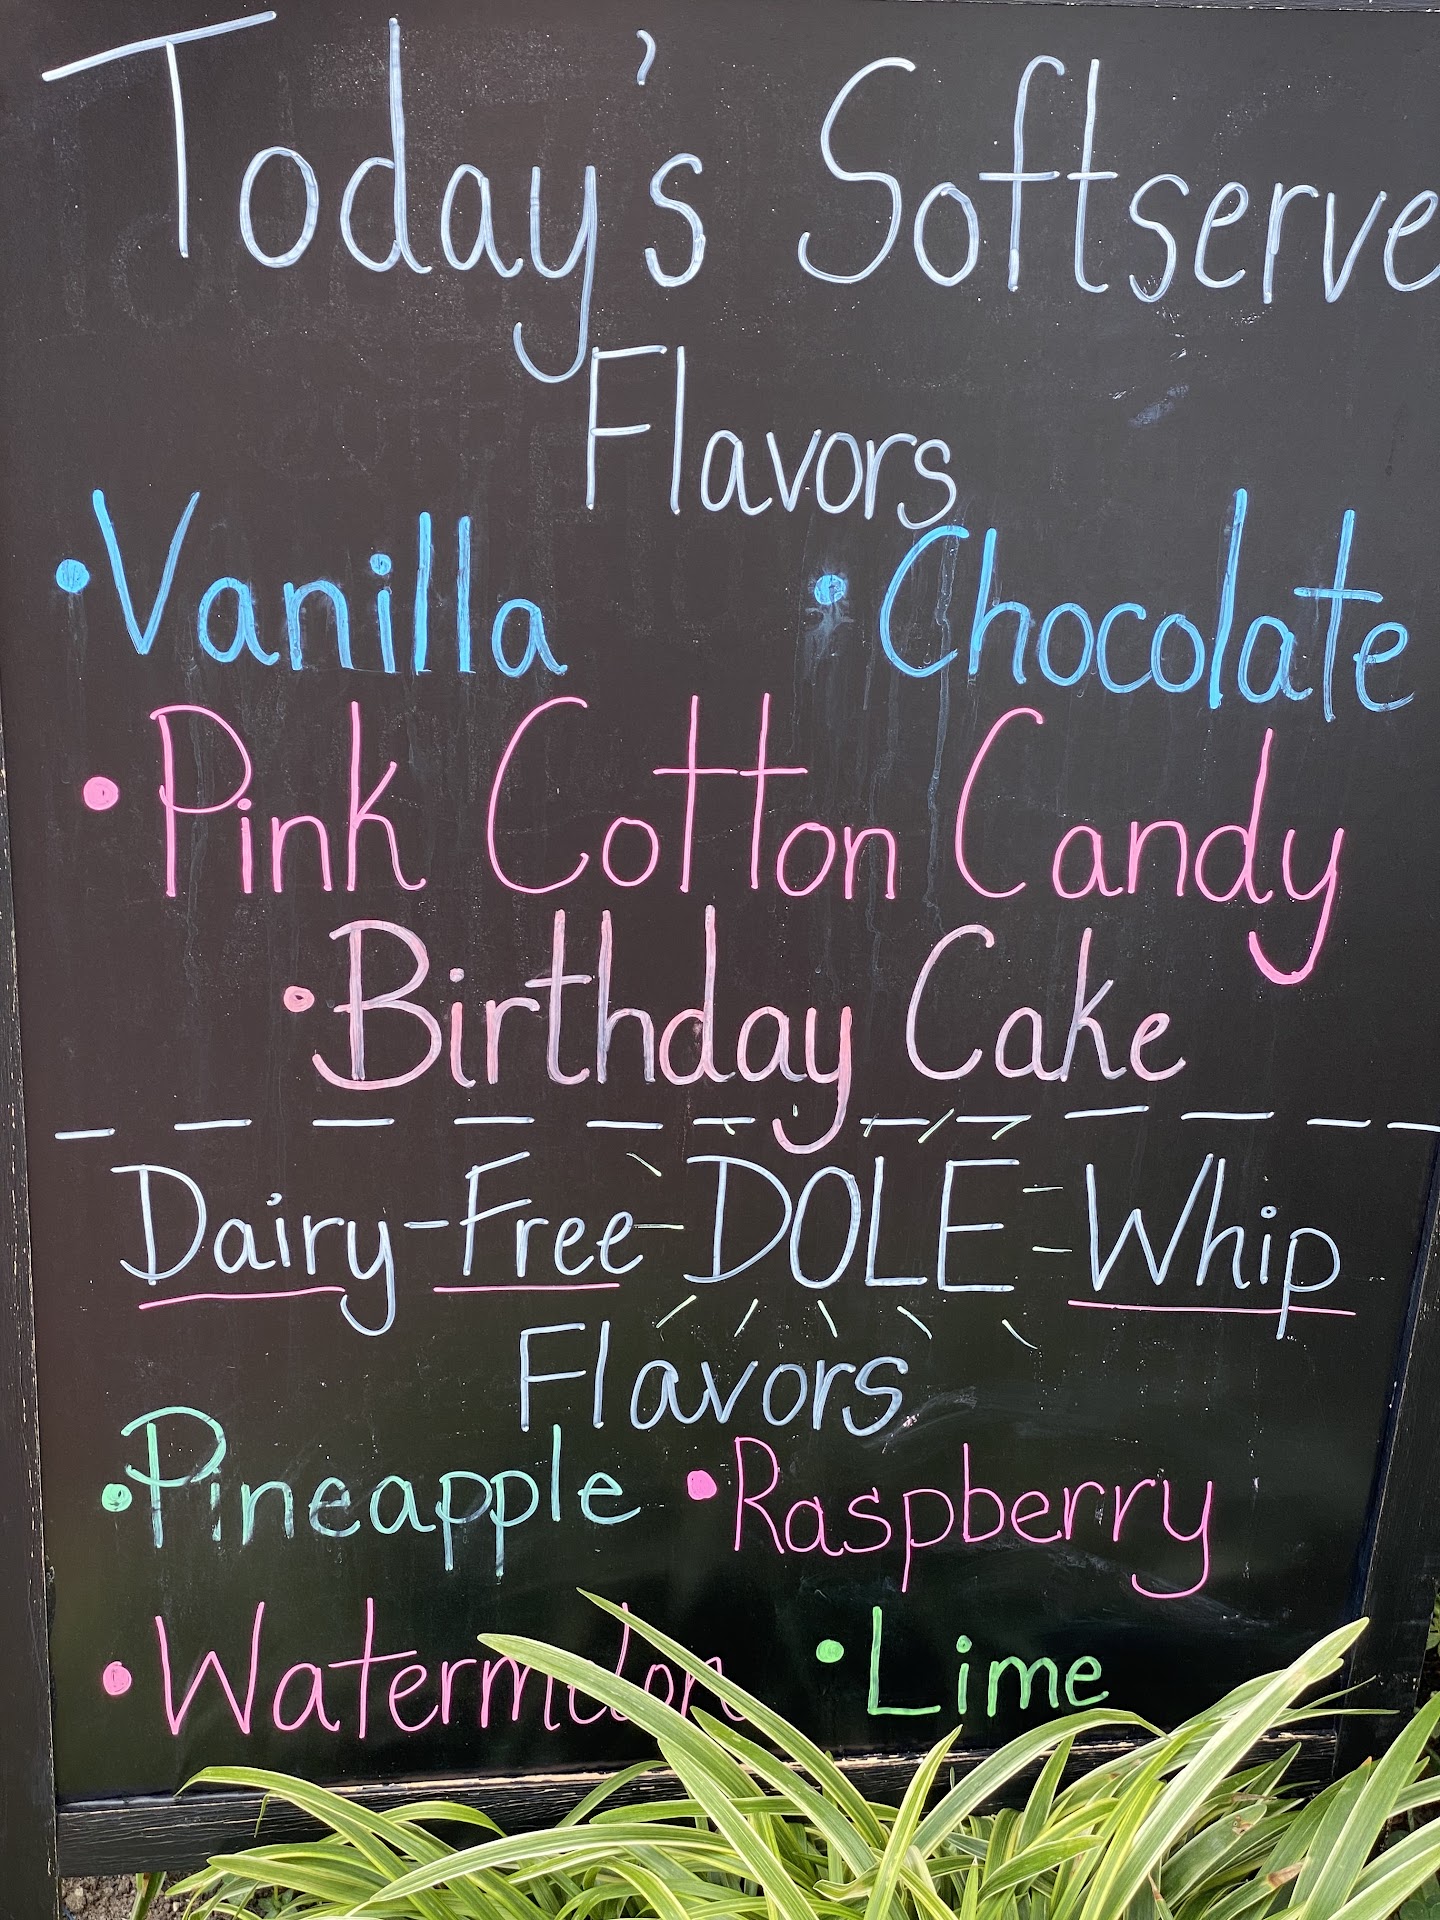 Today's Softserve
Flavors
• Vanilla • Chocolate
• Pink Cotton Candy
• Birthday Cake
Dairy-Free DOLE Whip
Flavors
• Pineapple • Raspberry
• Watermelon • Lime